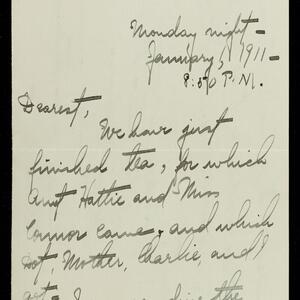 Monday night -
January , 1911 -
8:50 P.M.
Dearest,
We have just
finished tea, for which
Aunt Hattie and Miss
Connor came, and which
Dot, Mother, Charlie, and I
got - I the